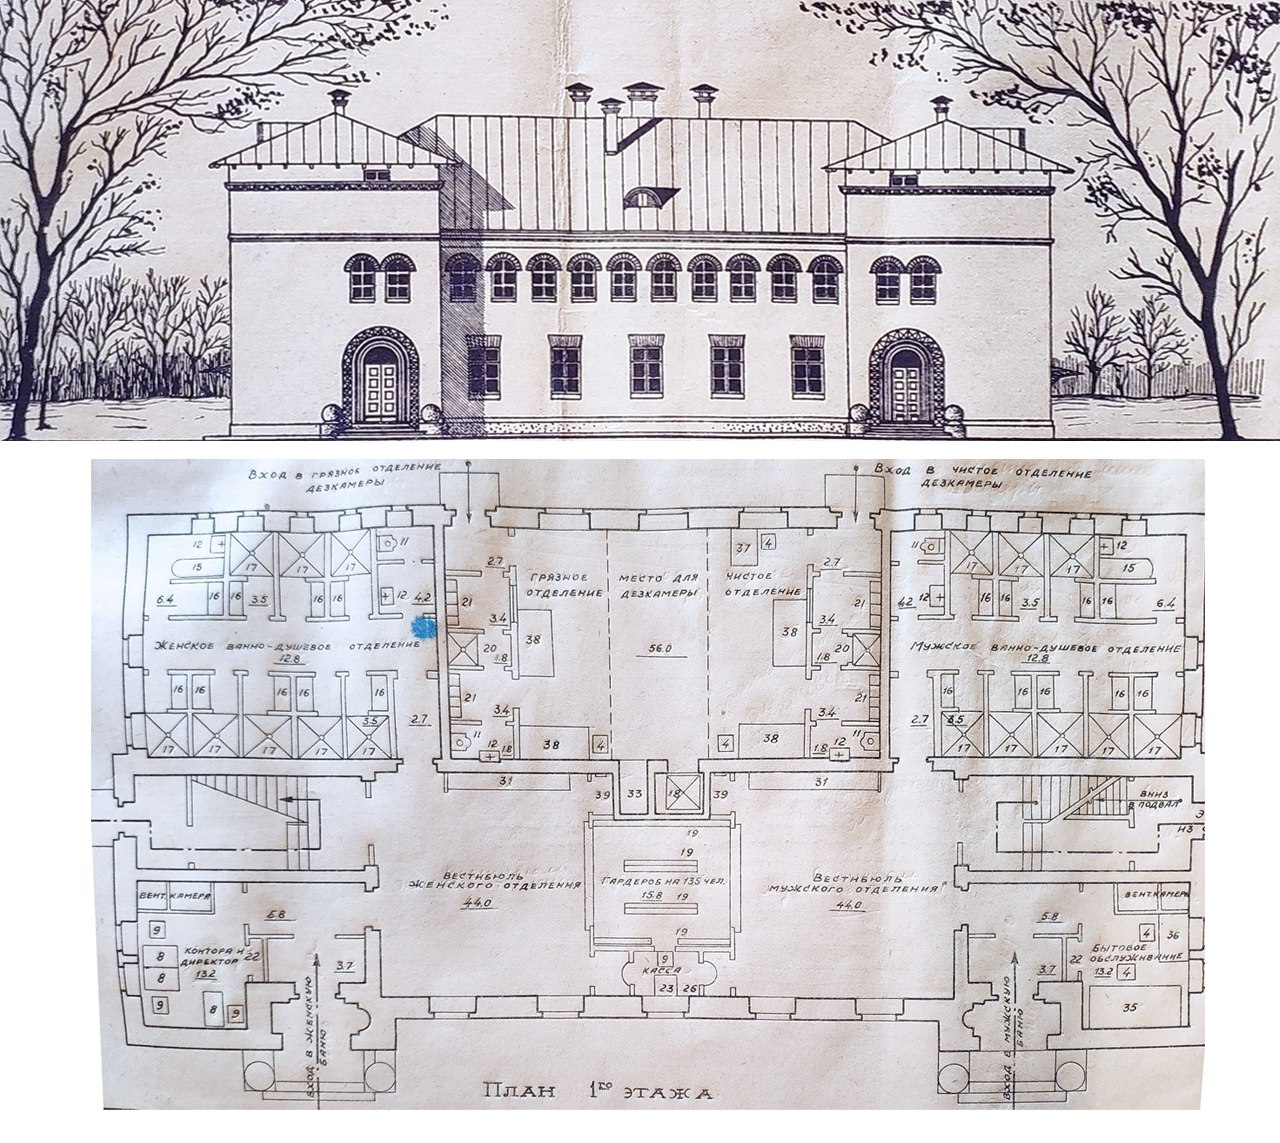 Вход в грязное отделение
дезкамеры
Вход в чистое отделение
дезкамеры
12
11
11
12
17
17
17
17
17
17
37
4
15
15
2.7
2.7
Грязное
отделение
Место для
дезкамеры
Чистое
отделение
6.4
16
16
3.5
16
16
12
4.2
21
21
4.2
12
16
16
3.5
16
16
6.4
3.4
38
38
3.4
Женское ванно-душевое отделение
12.8
20
1.8
56.0
1.8
20
Мужское ванно-душевое отделение
12.8
16
16
16
16
16
21
21
16
16
16
16
16
3.5
2.7
3.4
3.4
2.7
3.5
17
17
17
17
17
11
12
1.8
38
4
4
38
1.8
12
11
17
17
17
17
17
31
31
39
33
18
39
Вниз
в подвал
19
19
Вестибюль
женского отделения
44.0
Гардероб на 135 чел.
15.8
19
19
Вестибюль
мужского отделения
44.0
Вент. камера
Вент. камера
5.8
5.8
9
8
8
9
8
9
Контора и
директор
13.2
22
3.7
9
Касса
23
26
3.7
22
4
36
Бытовое
обслуживание
13.2
4
35
Вход в женскую
баню
Вход в мужскую
баню
План 1го этажа